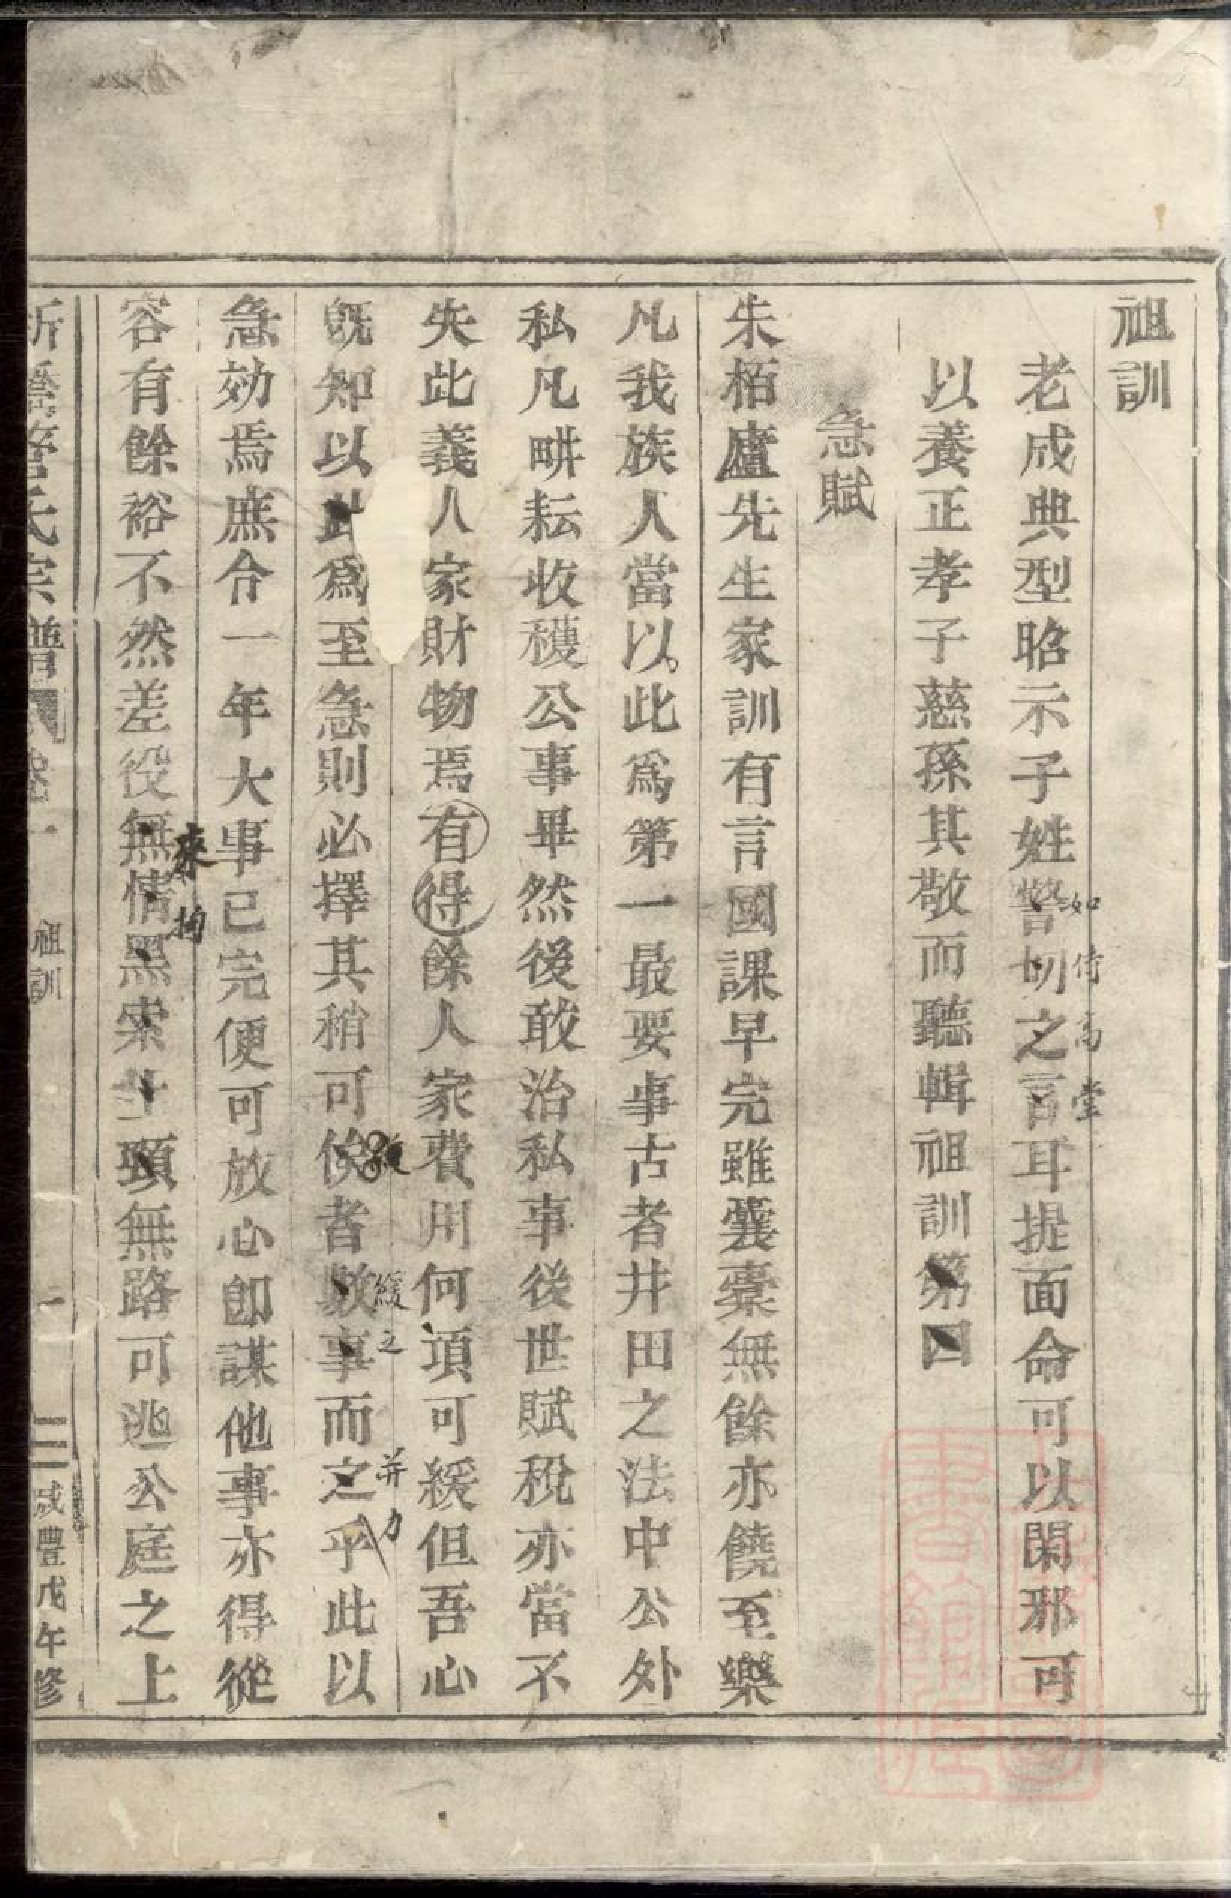 祖訓
老成典型昭示子姓警切之言耳提面命可以閑邪可
如侍高堂
以養正孝子慈孫其敬而聽輯祖訓第四
急賦
朱栢廬先生家訓有言國課早完雖囊橐無餘亦饒至樂
凡我族人當以此爲第一最要事古者井田之法中公外
私凡畊耘收穫公事畢然後敢治私事後世賦稅亦當不
失此義人家財物焉有得餘人家費用何項可緩但吾心
既知以此爲至急則必擇其稍可俟者數事而之乎此以
緩之
并力
急効焉庶合一年大事已完便可放心卽謀他事亦得從
容有餘裕不然差役無情黑索頸無路可逃公庭之上
來拘
管氏宗譜
卷一
祖訓
一
咸豐戊午修